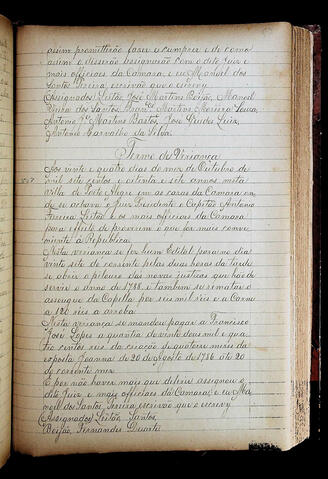 assim prometterão fazer e cumprir e de como
assim o disserão assignarão com o dito Juiz e
mais officiaes da Camara, e eu Manoel dos
Santos Pereira, escrivão que o escrevy
(Assignados) Leitão, José Martins Beijão, Manoel
dos Santos, Martins Moreira Louza,
Antonio Martins Bastos, José Luiz,
Antonio Carvalho da Silva.
Termo de Veriança
Aos vinte e quatro dias do mez de Outubro de
mil sete centos e oitenta e sete annos nesta
villa de Porto Alegre em as casas da Camara on
de se achava o Juiz Presidente o Capitão Antonio
Pereira Leitão e os mais officiaes da Camara
para effeito de proverem o que for mais conve
niente á Republica.
Nesta veriança se fez hum Edital para no dia
vinte sete do corrente pelas duas horas da tarde
se abrir o pilouro das novas justiças que hão de
servir o anno de 1788, e tambem se rematar o
assougue da Capella por seis mil reis e a Carne
a 120 reis a arroba
Nesta veriança se mandou pagar a Francisco
José Lopes a quantia de vinte deus mil e qua
tro centos reis da criação de quatorze mezes da
exposta Joanna de 20 de Agosto de 1786 até 20
do corrente mez
E por não haver mais que deferir assignou o
dito Juiz e mais officiaes da Camara, e eu Ma
noel dos Santos Pereira, escrivão que o escrevy
(Assignados) Leitão, Santos,
Beijão, Fernandes, Duarte